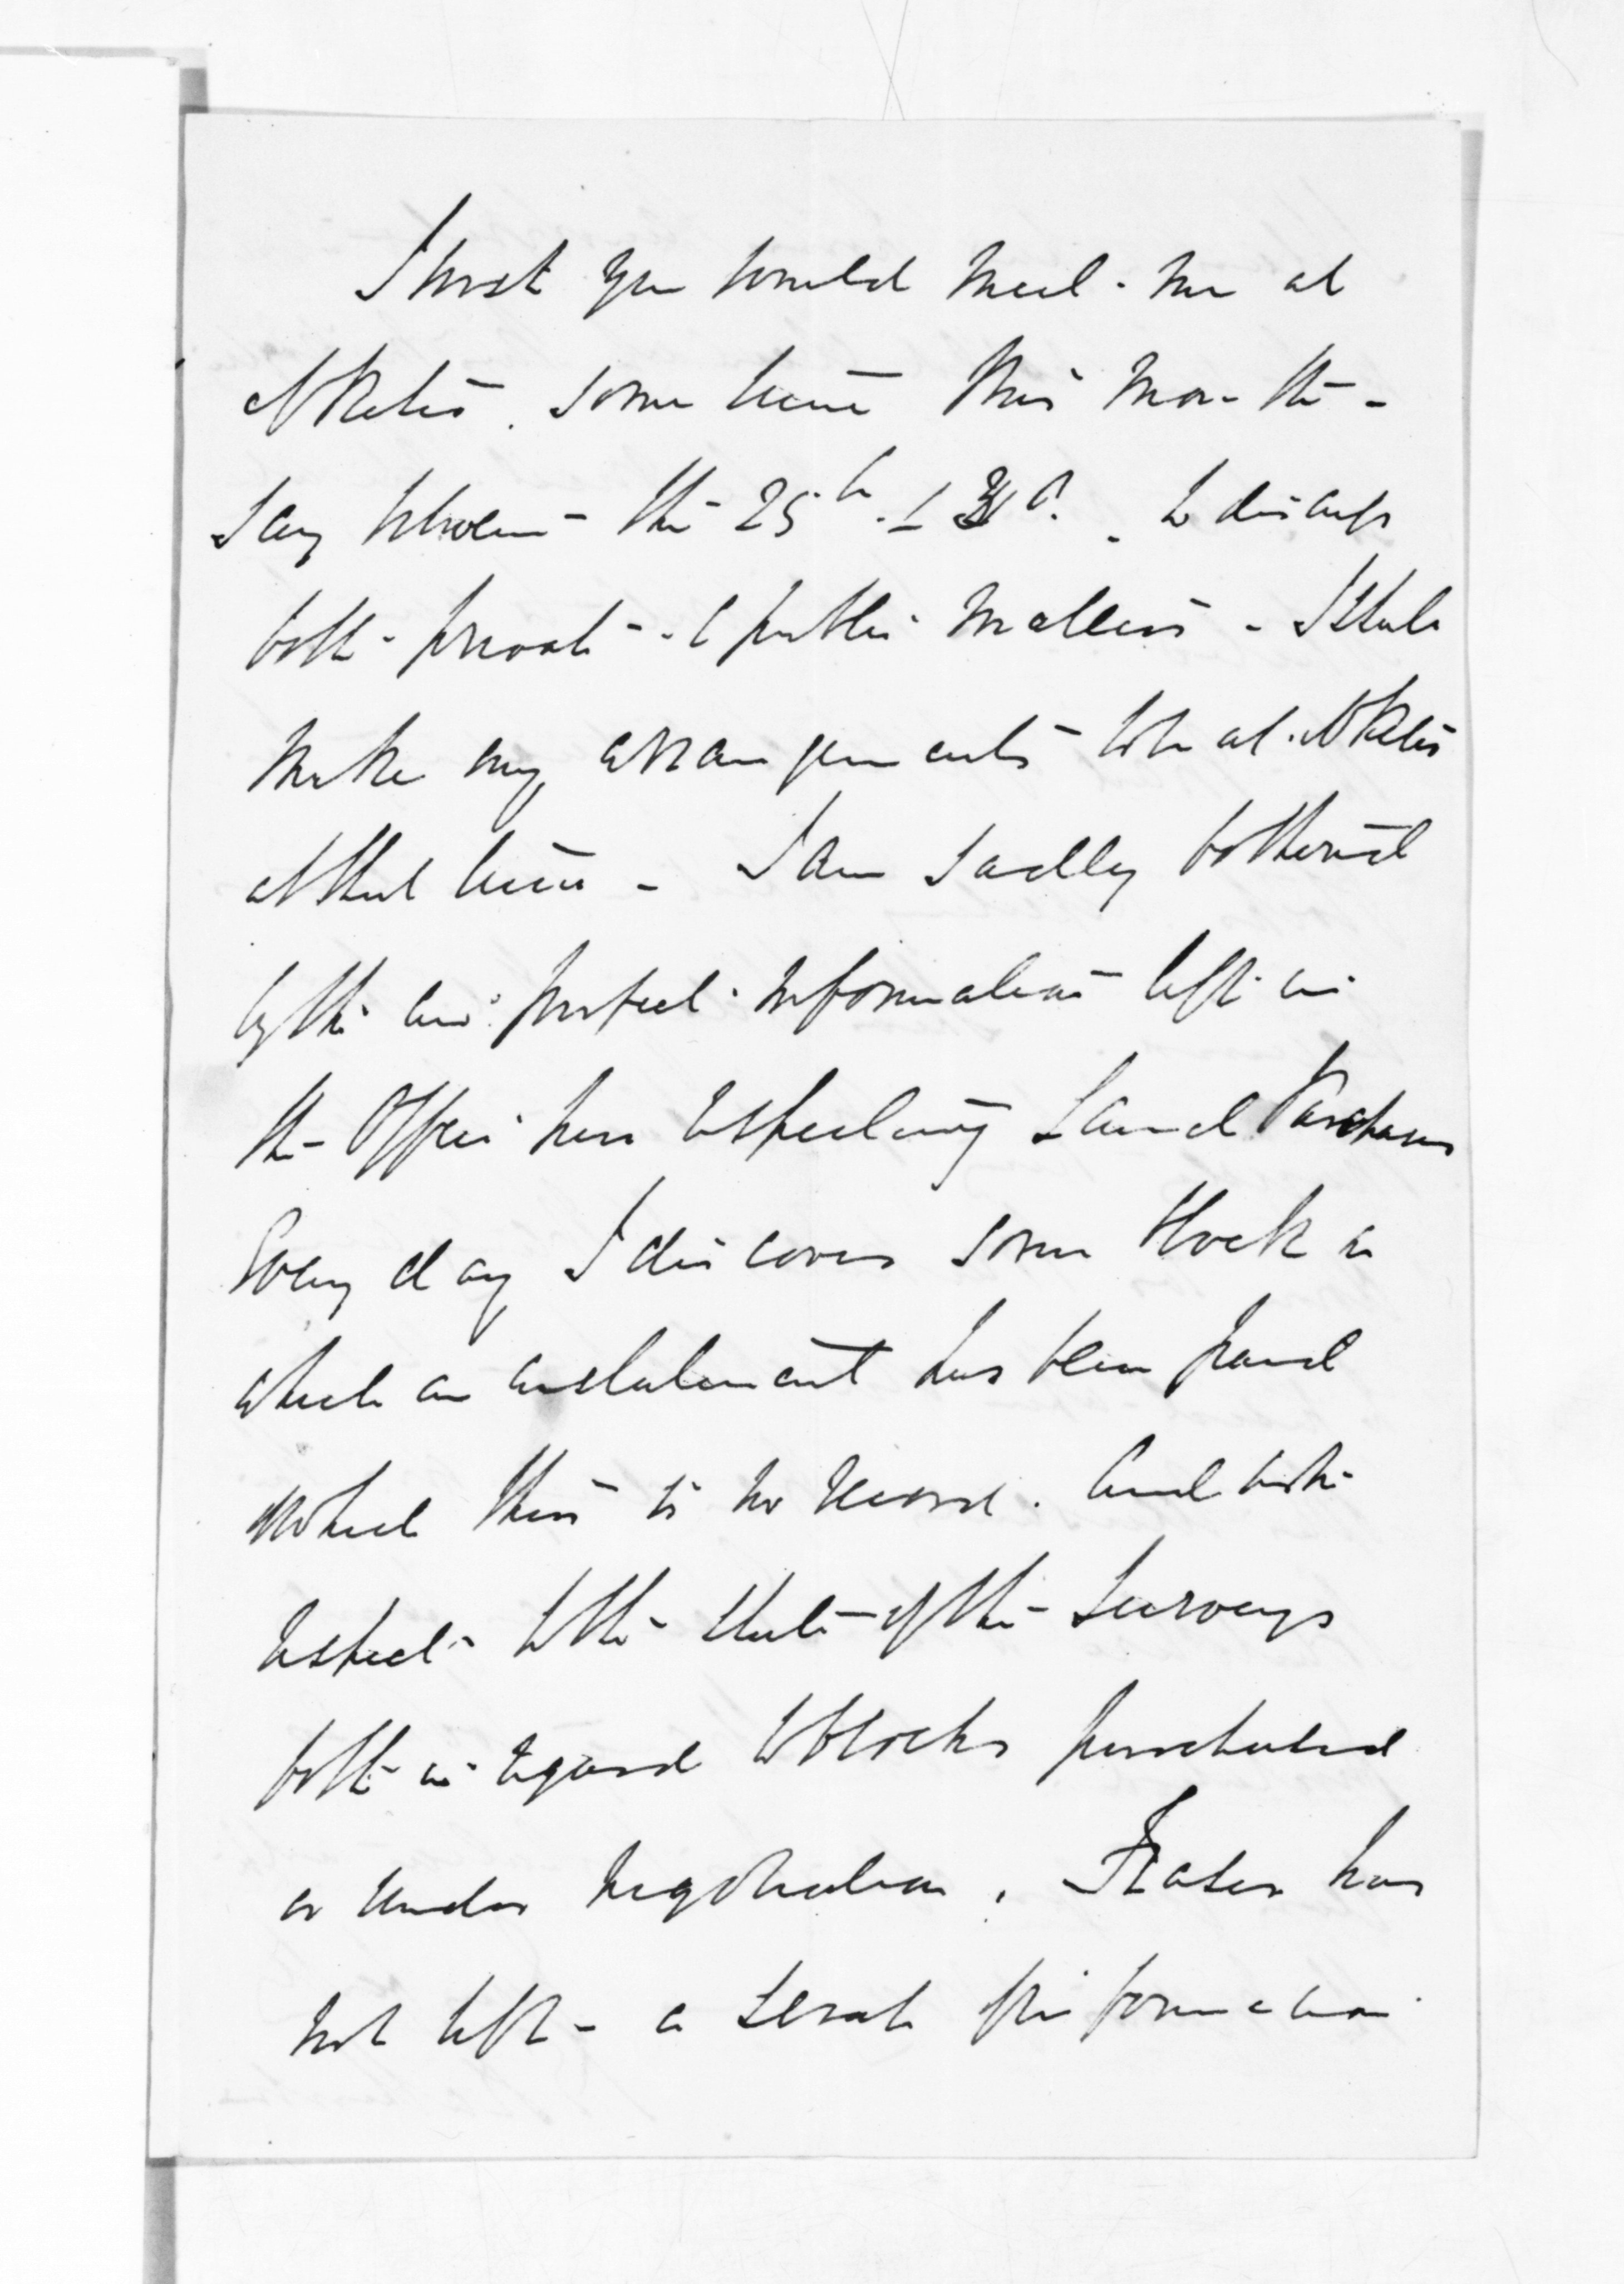 I wish you would meet me at
Nketis some time this month -
say between the 25th & 31st. to discuss
both private & public matters - I shall
make my arrangements to be at
at that time - I am sadly bothered
by the imperfect information left in
the Office here respecting Land Purchases
Every day I discover some block on
which an instalment has been paid
of which there is no record. And with
respect to the state of the Surveys
both in regard to blocks purchased
or under negotiation. Fraser has
not left a scrap of information